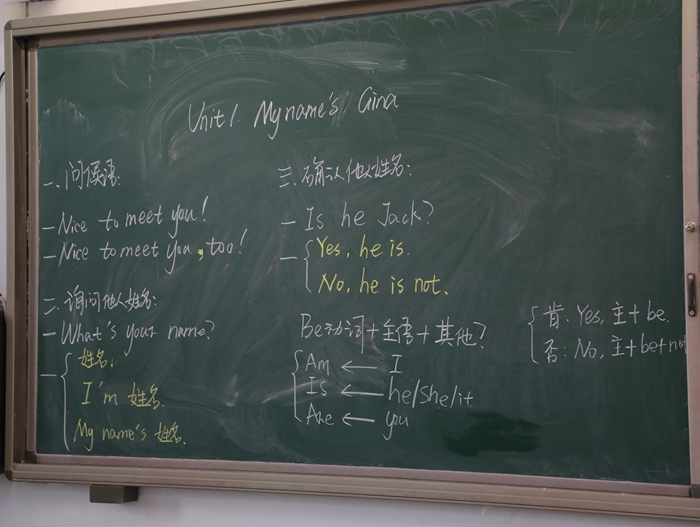 Unit 1. My name's Gina
一、问候语:
— Nice to meet you!
— Nice to meet you, too!
二、询问他人姓名:
— What's your name?
— 姓名.
I'm 姓名.
My name's 姓名.
三、确认他人姓名:
— Is he Jack?
— Yes, he is.
No, he is not.
Be动词+主语+其他?
Am ← I
Is ← he/She/it
Are ← you
肯: Yes, 主+be.
否: No, 主+be+not